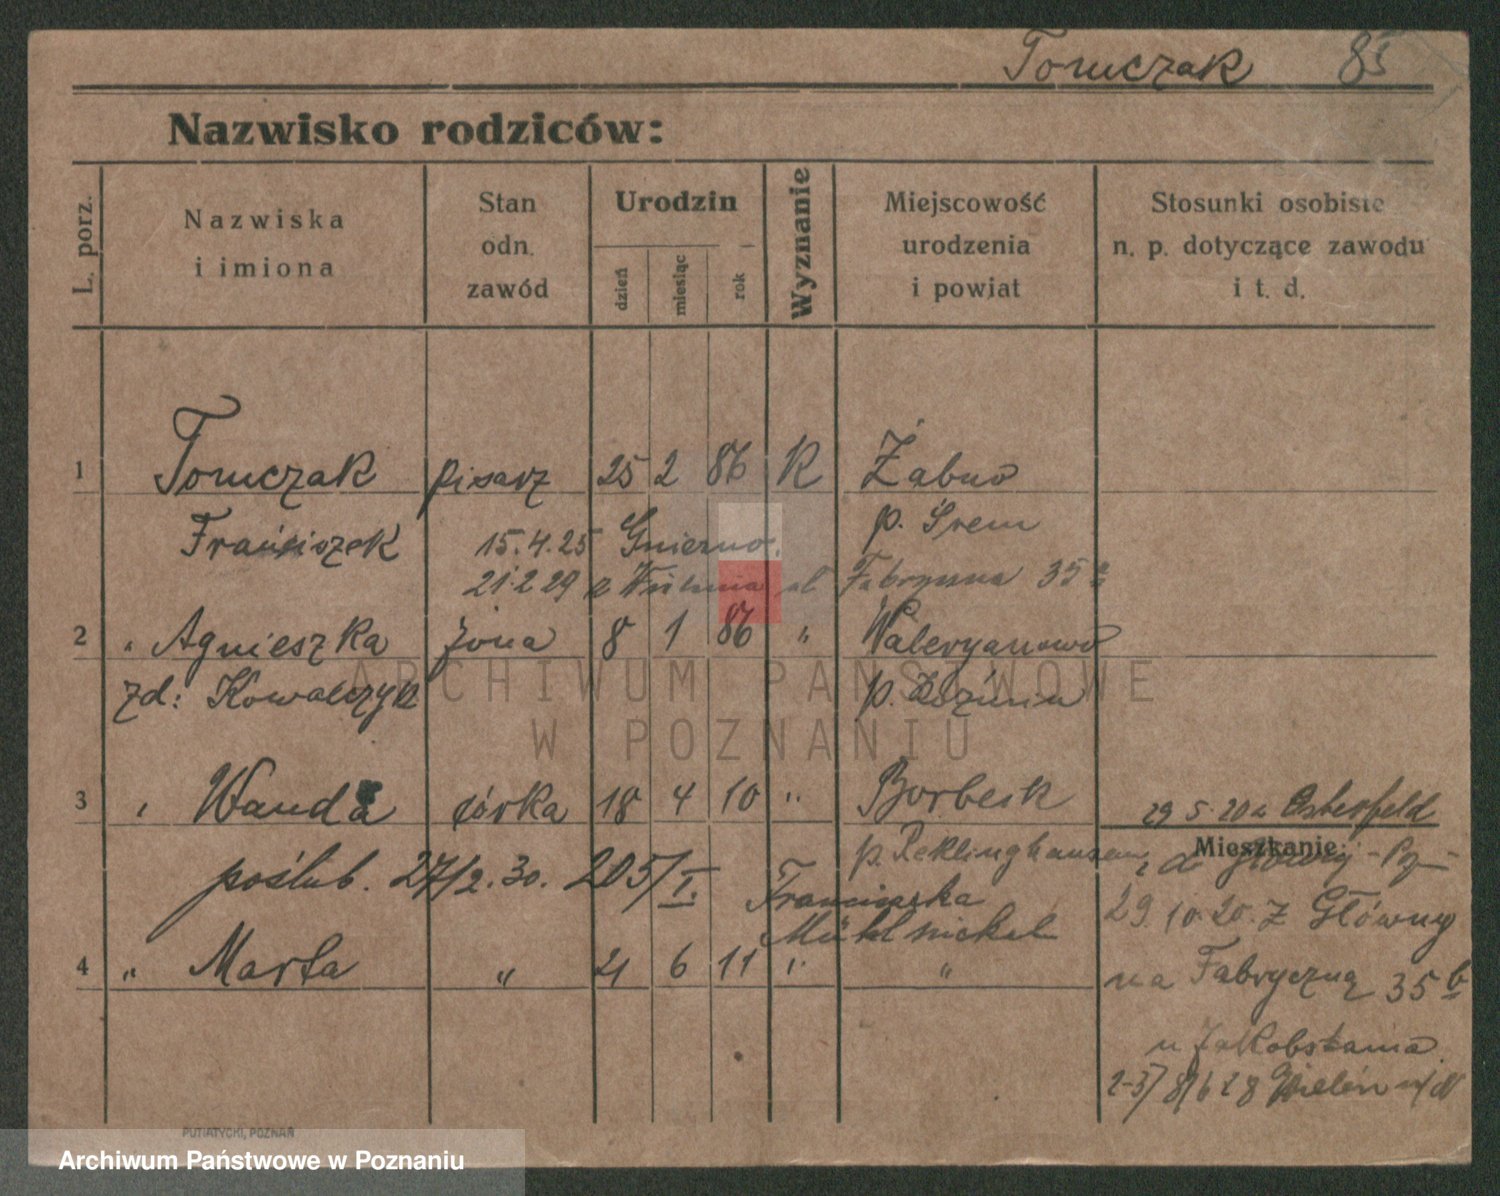 Tomczak 85
Nazwisko rodziców:
L. porz.
Nazwiska
i imiona
Stan
odn.
zawód
Urodzin
dzień
miesiąc
rok
Wyznanie
Miejscowość
urodzenia
i powiat
Stosunki osobiste
n. p. dotyczące zawodu
i t. d.
1 Tomczak pisarz 25 2 86 K Żabno
Franciszek 15.4.25 Gniezno. p. Śrem
21.2.29 z Fabryczna 35
2 " Agnieszka żona 8 1 86 " Waleryanowo
zd: Kowalczyk p.
ARCHIWUM PAŃSTWOWE
W POZNANIU
3 " Wanda córka 18 4 10 " Borbeck
29 5.20 z Osterfeld
Mieszkanie:
p. Reklinghausen
do Główny
poślub. 27/2.30. 205/I. Franciszka
Mühlnickel
29.10.20. z Główny
4 " Marta " 21 6 11 " "
na Fabryczną 35 b
u Jakobstama
2-3/8/6 28 Wieleń n/N
PUTIATYCKI, POZNAŃ
Archiwum Państwowe w Poznaniu